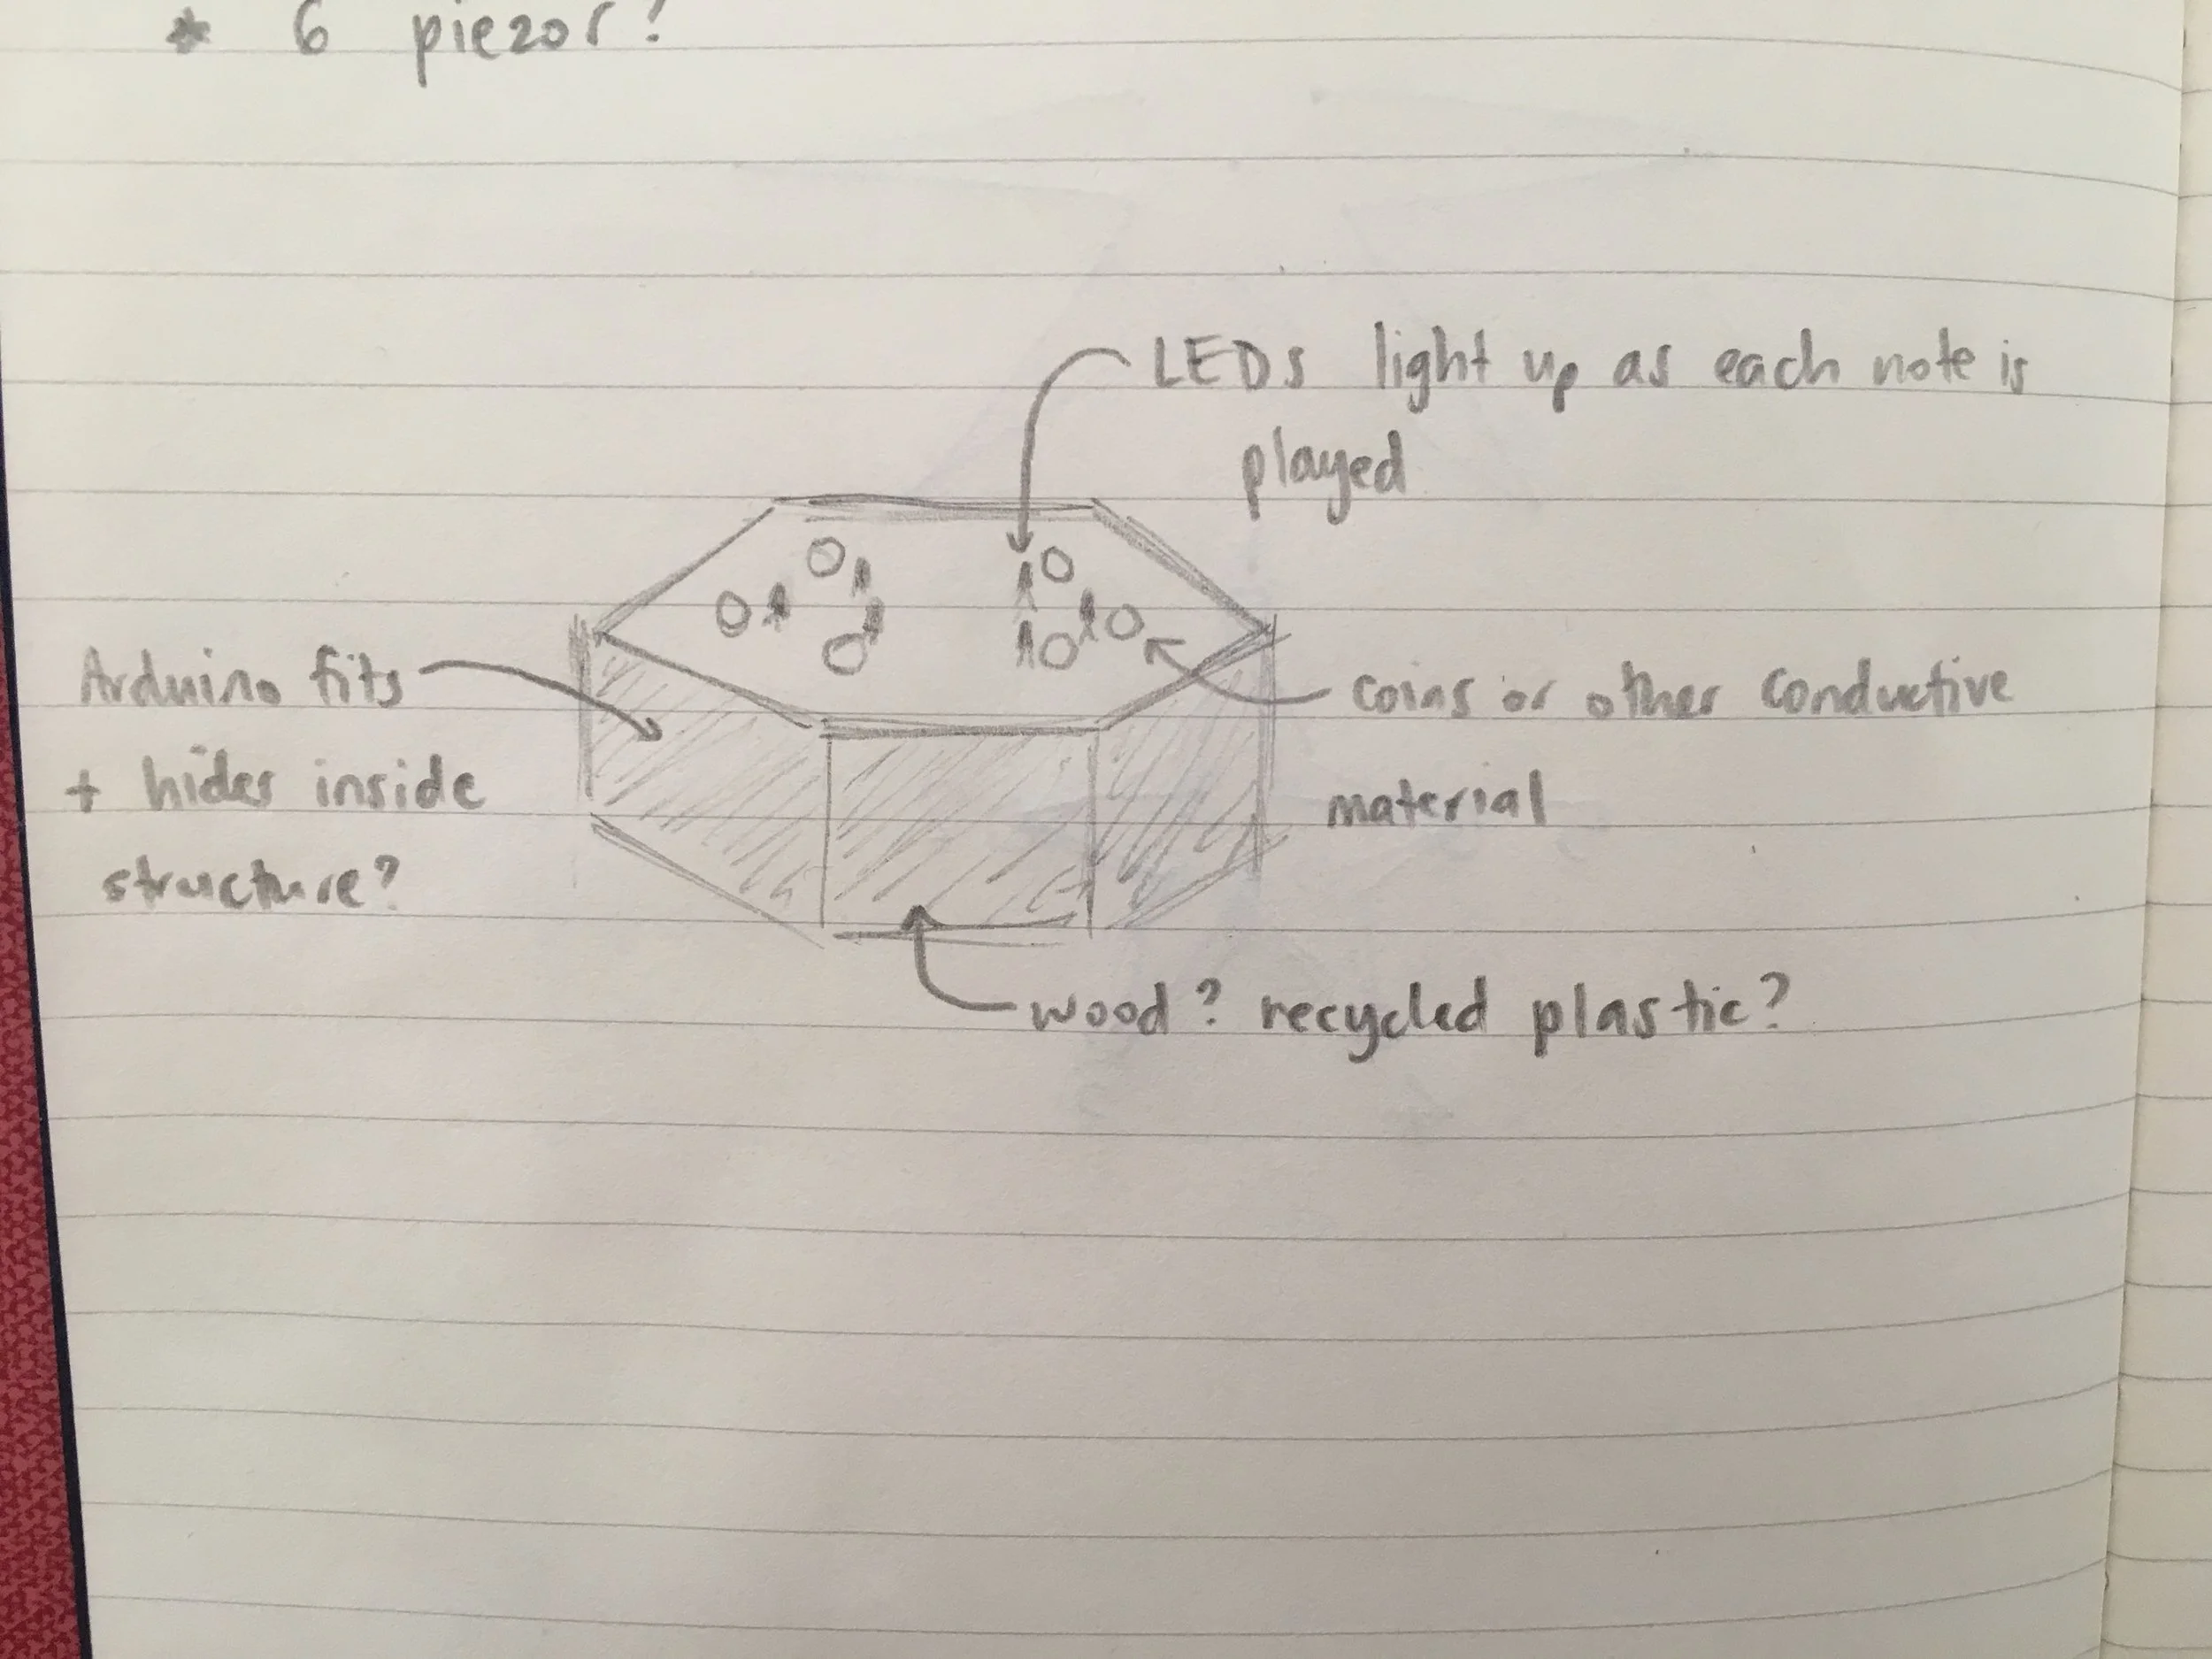 * 6 piezos!
LEDs light up as each note is
played
Arduino fits
+ hides inside
structure?
coins or other conductive
material
wood? recycled plastic?